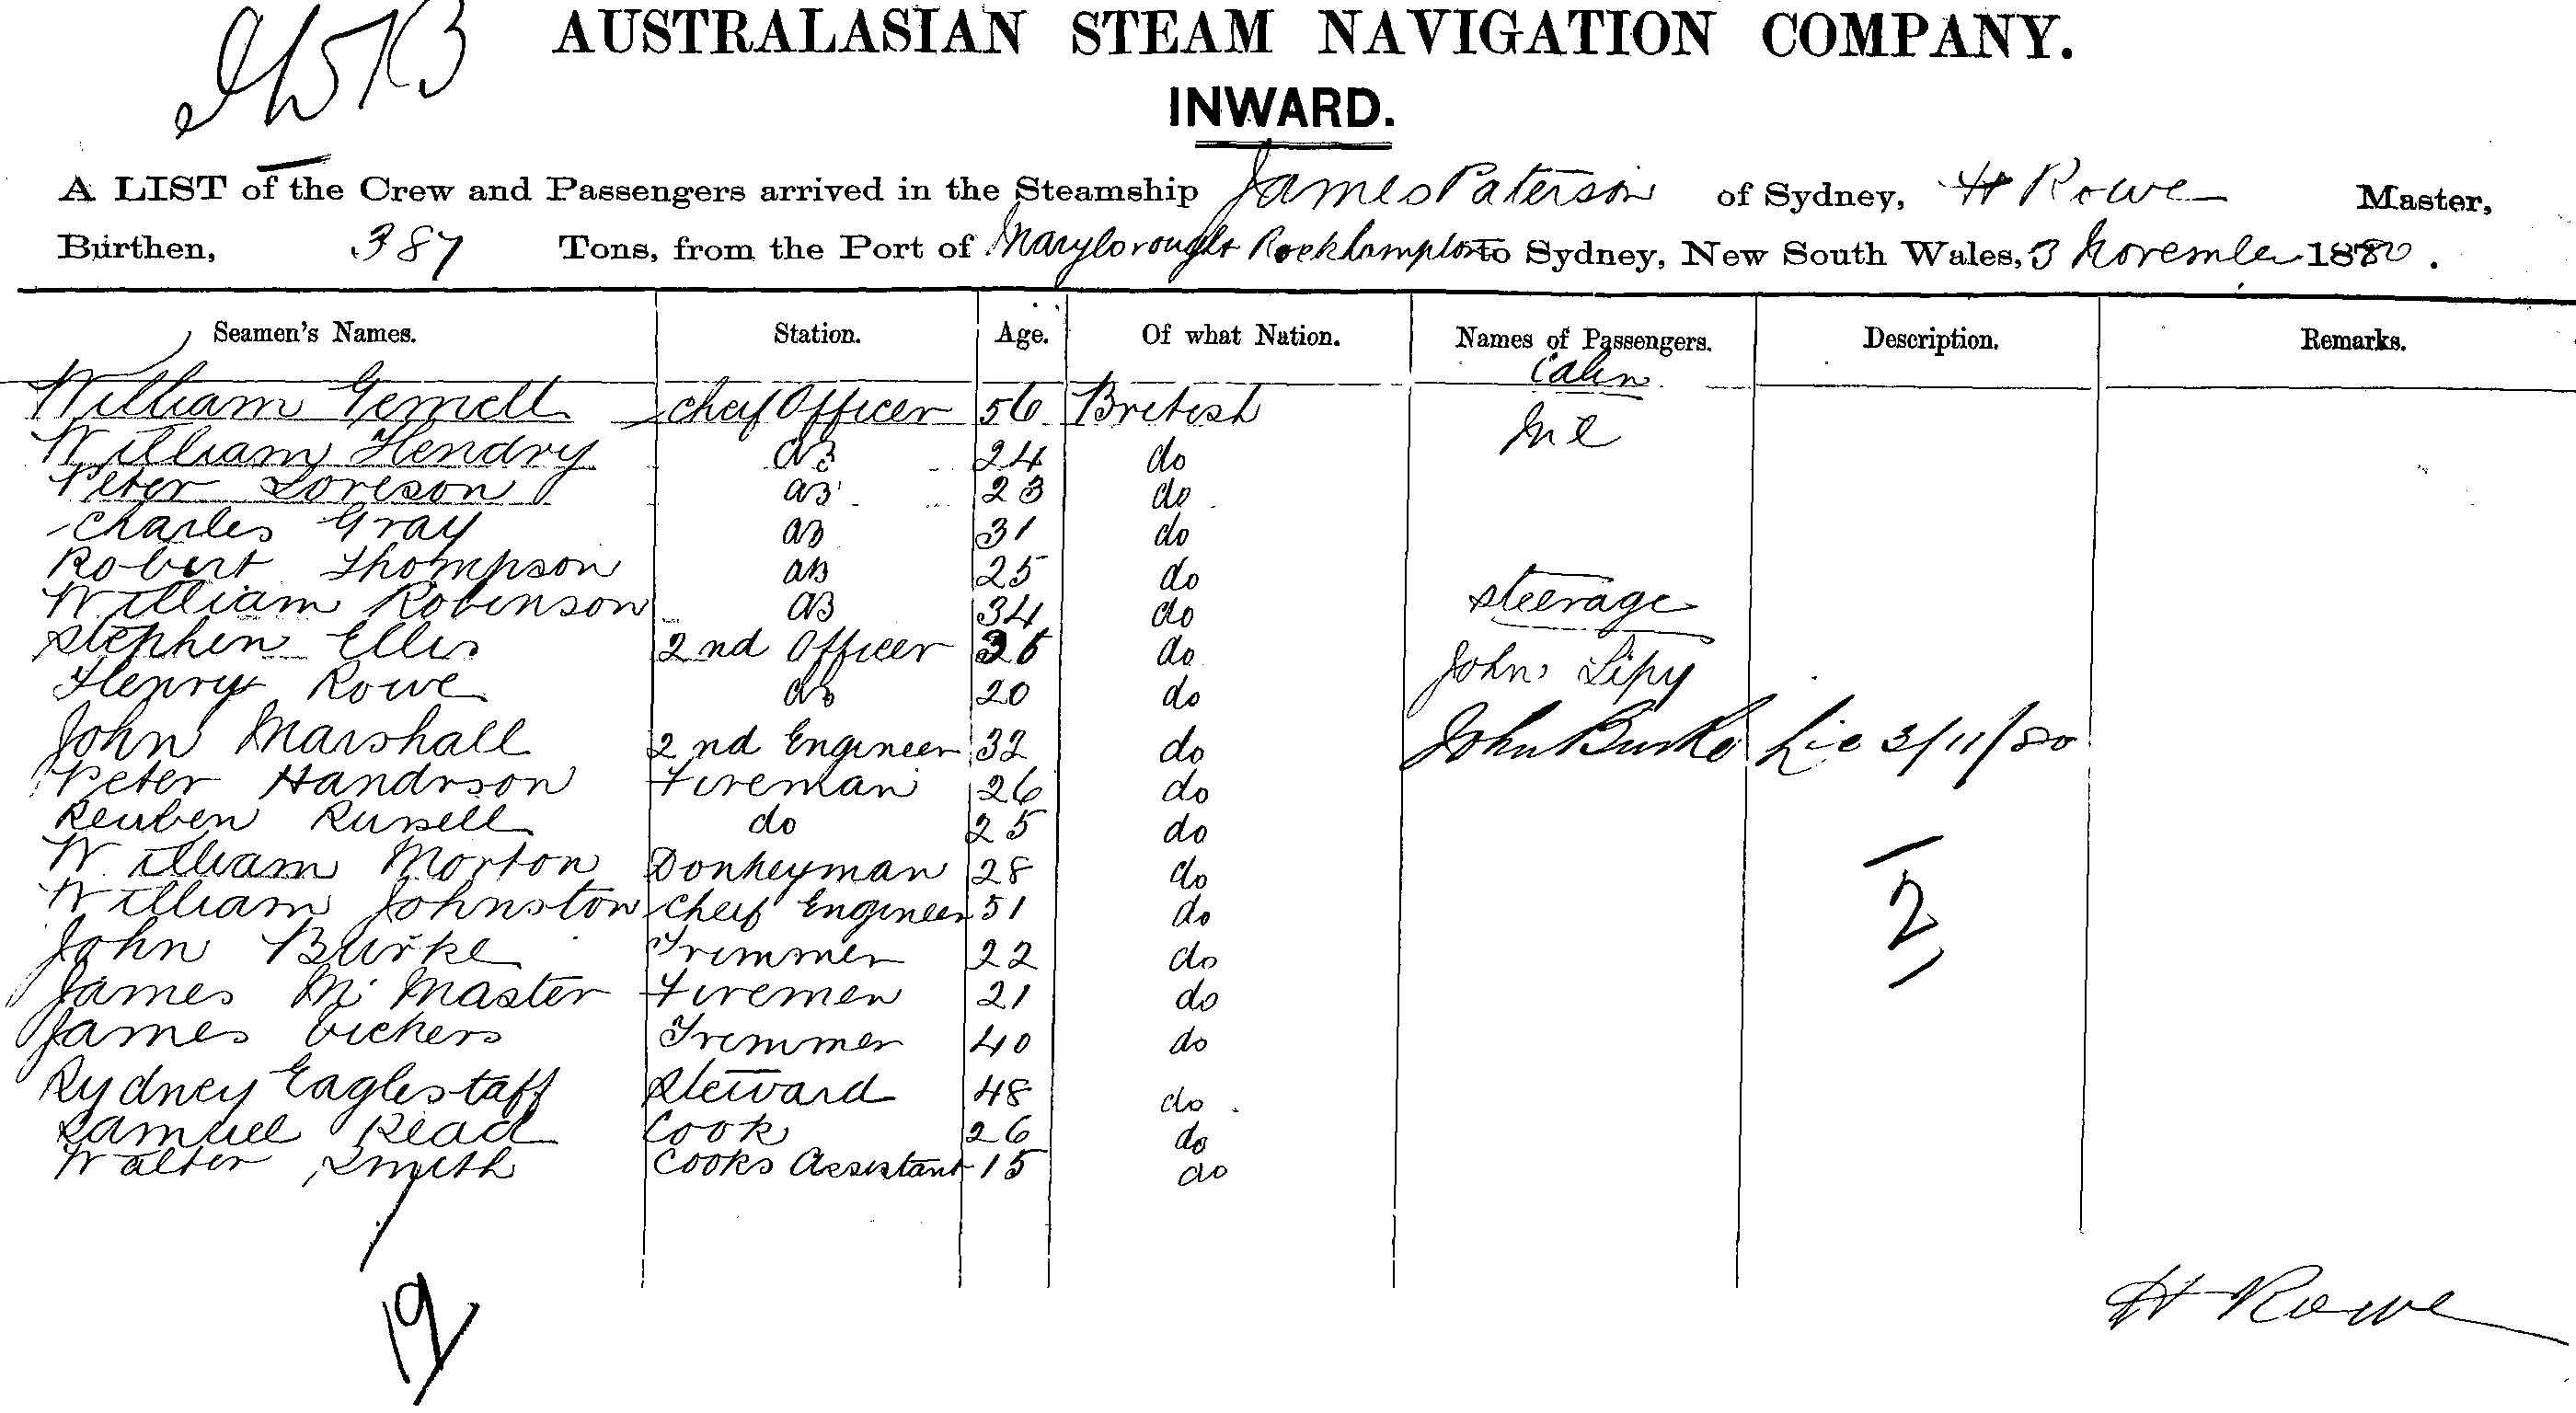 AUSTRALASIAN STEAM NAVIGATION COMPANY.
INWARD.
A LIST of the Crew and Passengers arrived in the Steamship James Paterson of Sydney, H Rowe Master,
Burthen, 387 Tons, from the Port of Maryborough Rockhampton to Sydney, New South Wales, 3 November 1880.
Seamen's Names. Station. Age. Of what Nation. Names of Passengers. Description. Remarks.
Cabin
William Gemell Cheif Officer 56 British
William Hendry AB 24 do
Peter Loreson AB 23 do
Charles Gray AB 31 do
Robert Thompson AB 25 do
William Robinson AB 34 do Steerage
Stephen Ellis 2nd Officer do John Lipy
Henry Rowe AB 20 do
John Marshall 2nd Engineer 32 do John Burke 3/11/80
Peter Handrson Fireman 26 do
Reuben Russell do 25 do
William Morton Donkeyman 28 do
William Johnston Cheif Engineer 51 do 2
John Burke Trimmer 22 do
James Mc Master Firemen 21 do
James Vickers Trimmer 40 do
Sydney Eaglestaff Steward 48 do
Samuel Read Cook 26 do
Walter Smith Cooks Assistant 15 do
19
H Rowe